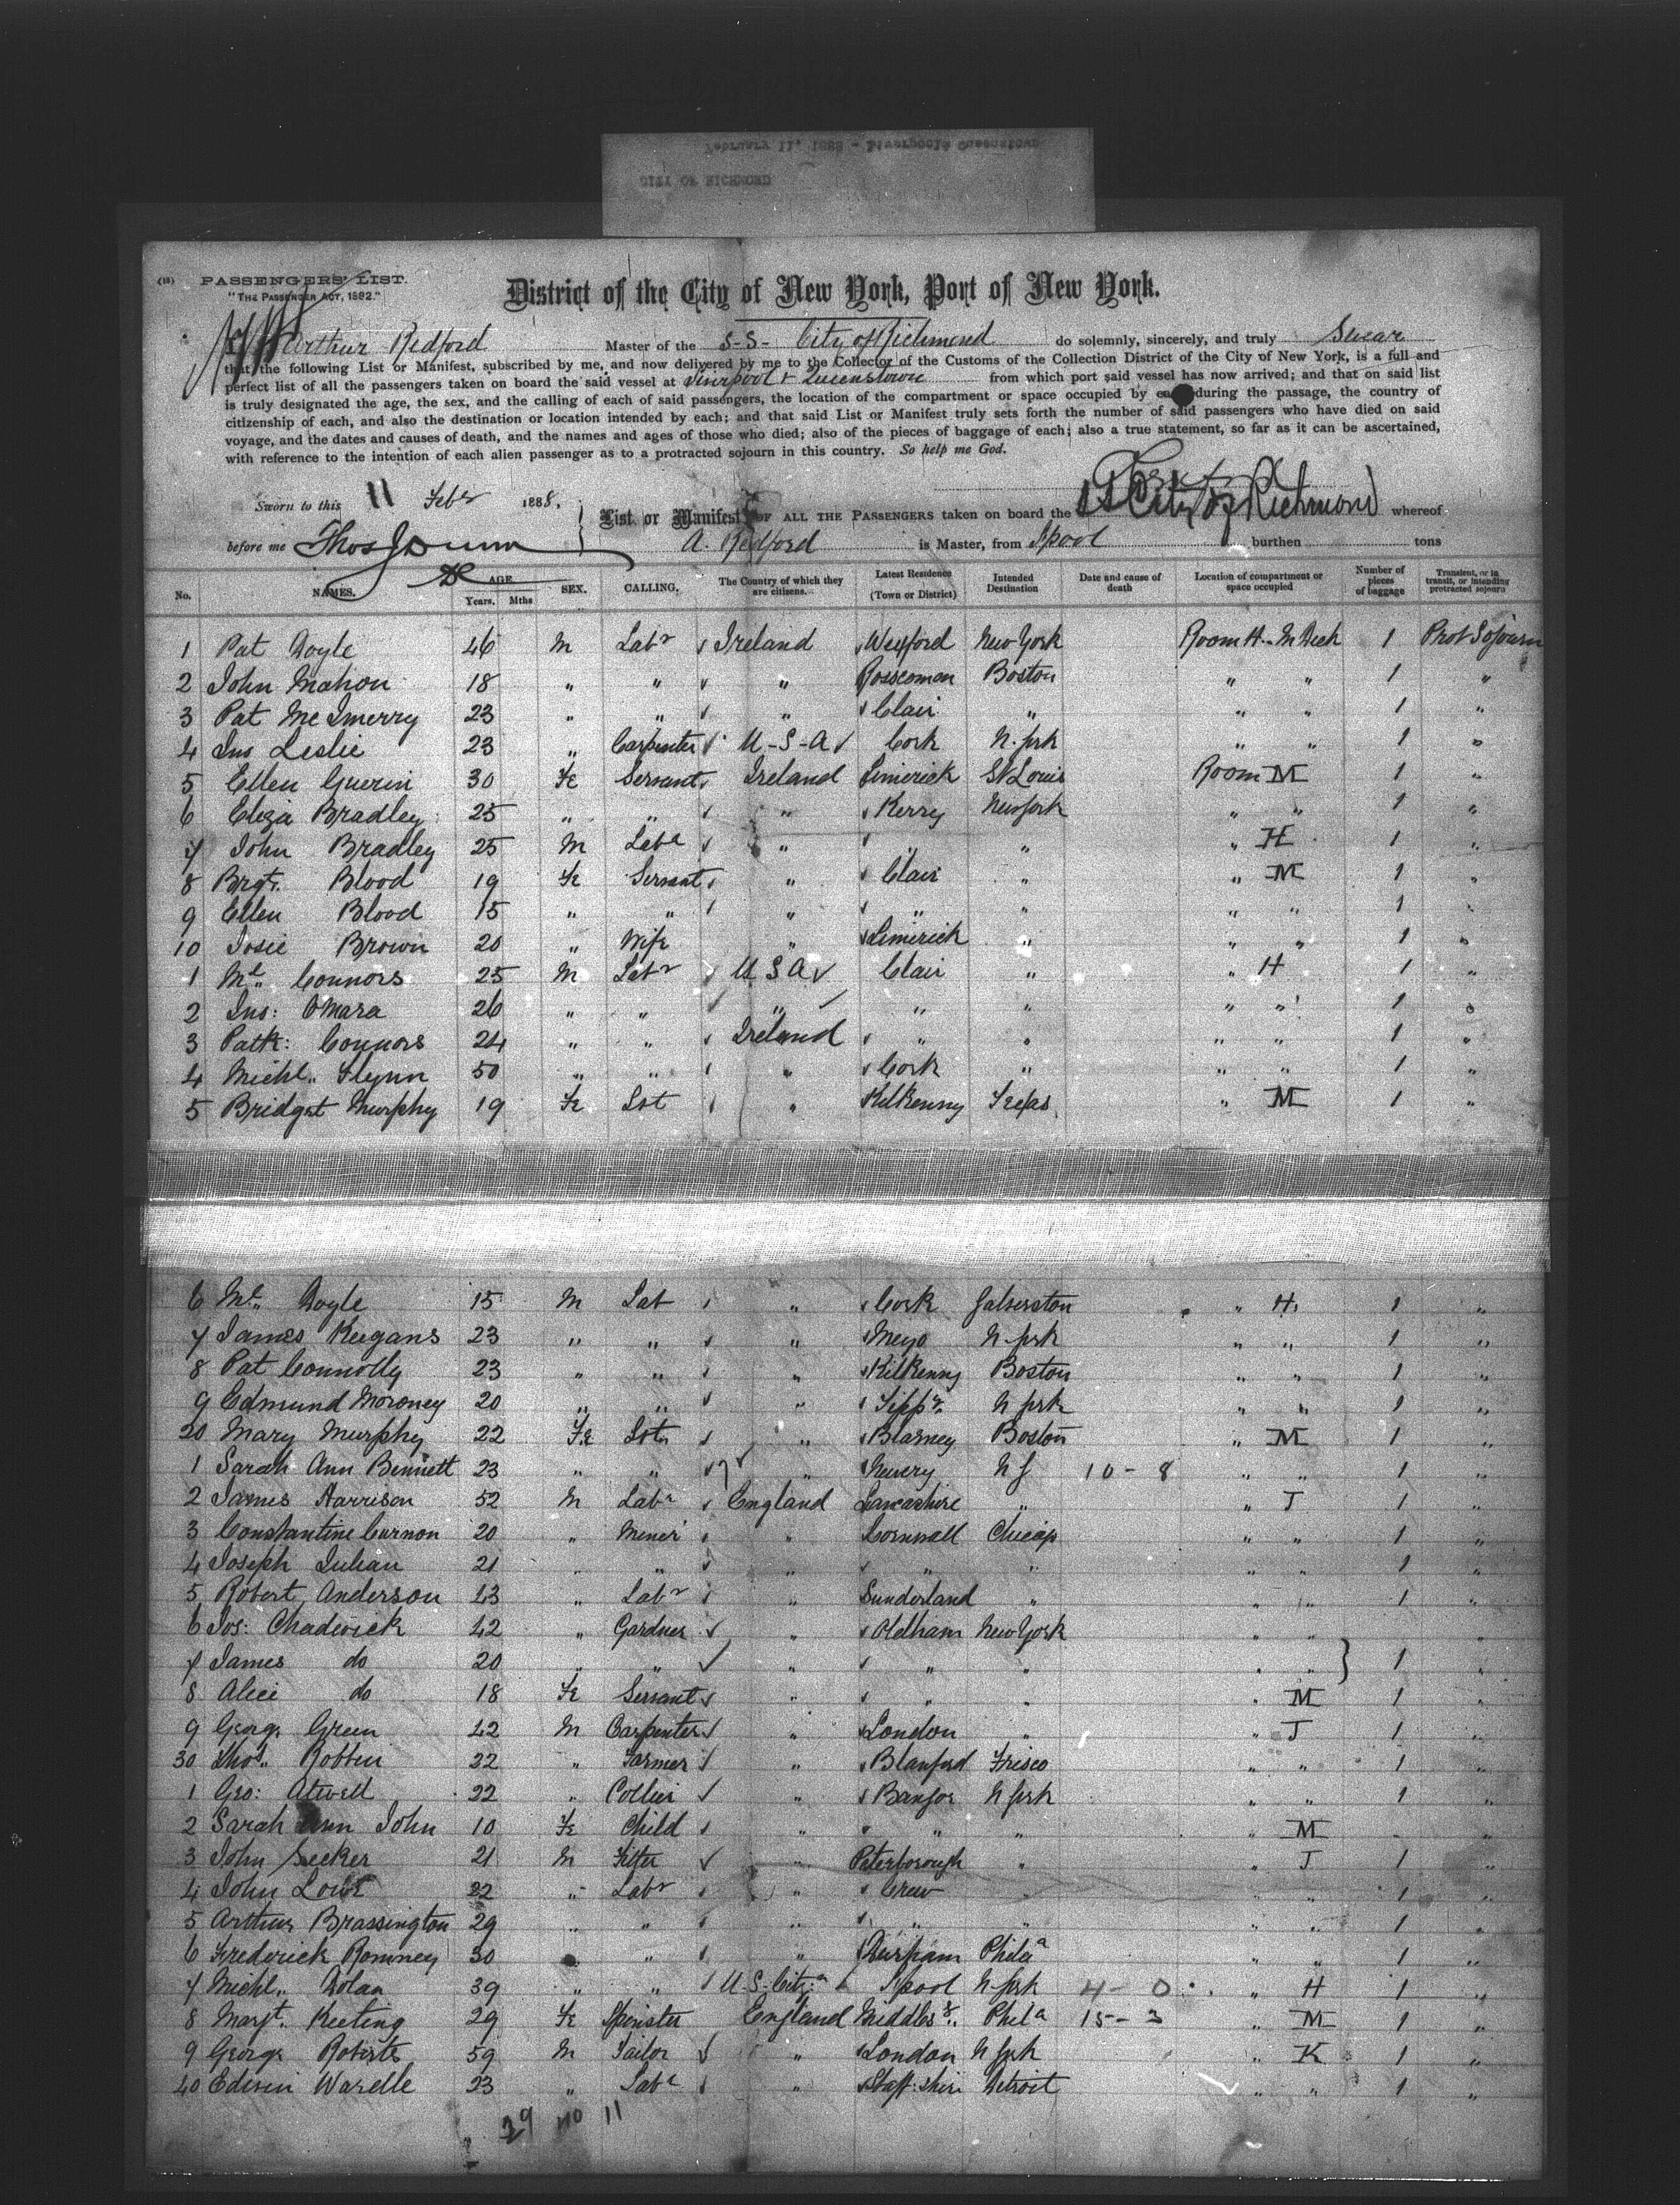 February 11, 1888 - Liverpool & Queenstown
CITY OF RICHMOND
(18) PASSENGERS' LIST.
"THE PASSENGER ACT, 1882."
District of the City of New York, Port of New York.
I, Arthur Redford Master of the S-S- City of Richmond do solemnly, sincerely, and truly Swear
that the following List or Manifest, subscribed by me, and now delivered by me to the Collector of the Customs of the Collection District of the City of New York, is a full and
perfect list of all the passengers taken on board the said vessel at Liverpool & Queenstown from which port said vessel has now arrived; and that on said list
is truly designated the age, the sex, and the calling of each of said passengers, the location of the compartment or space occupied by each during the passage, the country of
citizenship of each, and also the destination or location intended by each; and that said List or Manifest truly sets forth the number of said passengers who have died on said
voyage, and the dates and causes of death, and the names and ages of those who died; also of the pieces of baggage of each; also a true statement, so far as it can be ascertained,
with reference to the intention of each alien passenger as to a protracted sojourn in this country. So help me God.
Sworn to this 11 Febr 1888,
List or Manifest OF ALL THE PASSENGERS taken on board the SS City of Richmond whereof
before me Thos J Dunn A. Redford is Master, from Lpool burthen tons
No. NAMES. AGE Years. Mths SEX. CALLING. The Country of which they are citizens. Latest Residence (Town or District) Intended Destination Date and cause of death Location of compartment or space occupied Number of pieces of baggage Transient, or in transit, or intending protracted sojourn
1 Pat Doyle 46 M Labr Ireland Wexford New York Room H. M Deck 1 Prot Sojourn
2 John Mahon 18 " " " Rosscomon Boston " " 1 "
3 Pat McInerry 23 " " " Clair " " " 1 "
4 Jns Leslie 23 " Carpenter U-S-A Cork N. York " " 1 "
5 Ellen Guerin 30 Fe Servant Ireland Limerick St Louis Room M 1 "
6 Eliza Bradley 25 " " " Kerry New York " " 1 "
7 John Bradley 25 M Labr " " " " H 1 "
8 Brgt. Blood 19 Fe Servant " Clair " " M 1 "
9 Ellen Blood 15 " " " " " " " 1 "
10 Josie Brown 20 " Wife " Limerick " " " 1 "
1 Ml. Connors 25 M Labr U S A Clair " " H 1 "
2 Jns: OMara 26 " " " " " " " 1 "
3 Patk: Connors 24 " " Ireland " " " " 1 "
4 Michl. Flynn 50 " " " Cork " " " 1 "
5 Bridget Murphy 19 Fe Svt " Kilkenny Texas " M 1 "
6 Ml. Doyle 15 M Lab " Cork Galverston " H 1 "
7 James Keegans 23 " " " Mayo N. York " " 1 "
8 Pat Connolly 23 " " " Kilkenny Boston " " 1 "
9 Edmund Moroney 20 " " " Tippr. N York " " 1 "
20 Mary Murphy 22 Fe Svt " Blarney Boston " M 1 "
1 Sarah Ann Bennett 23 " " " Newery N Y 10 - 8 " " 1 "
2 James Harrison 52 M Labr England Lancashire " " J 1 "
3 Constantine Curnon 20 " Miner " Cornwall Chicago " " 1 "
4 Joseph Julian 21 " " " " " " " 1 "
5 Robert Anderson 43 " Labr " Sunderland " " " 1 "
6 Jos: Chadwick 42 " Gardner " Oldham New York " " "
7 James do 20 " " " " " " " } 1 "
8 Alice do 18 Fe Servant " " " " M 1 "
9 George Green 42 M Carpenter " London " " J 1 "
30 Thos. Robbin 22 " Farmer " Blanford Frisco " " 1 "
1 Geo: Atwell 22 " Collier " Bangor N York " " 1 "
2 Sarah Ann John 10 Fe Child " " " " M "
3 John Secker 21 M Fitter " Peterborough " " J 1 "
4 John Lowe 22 " Labr " Crew 1 "
5 Arthur Brassington 29 " " " " " " " 1 "
6 Frederick Romney 30 " " Durham Phila " " 1 "
7 Michl. Dolan 39 " " U-S-Citzn Lpool N-York 4 - 0 " H 1 "
8 Margt. Keeting 29 Fe Spinster England Middlesx. Phila 15 - 3 " M 1 "
9 George Roberts 59 M Tailor " London N York " K 1 "
40 Edwin Warelle 23 " Labr " Staff:shire Detroit " " 1 "
29 11